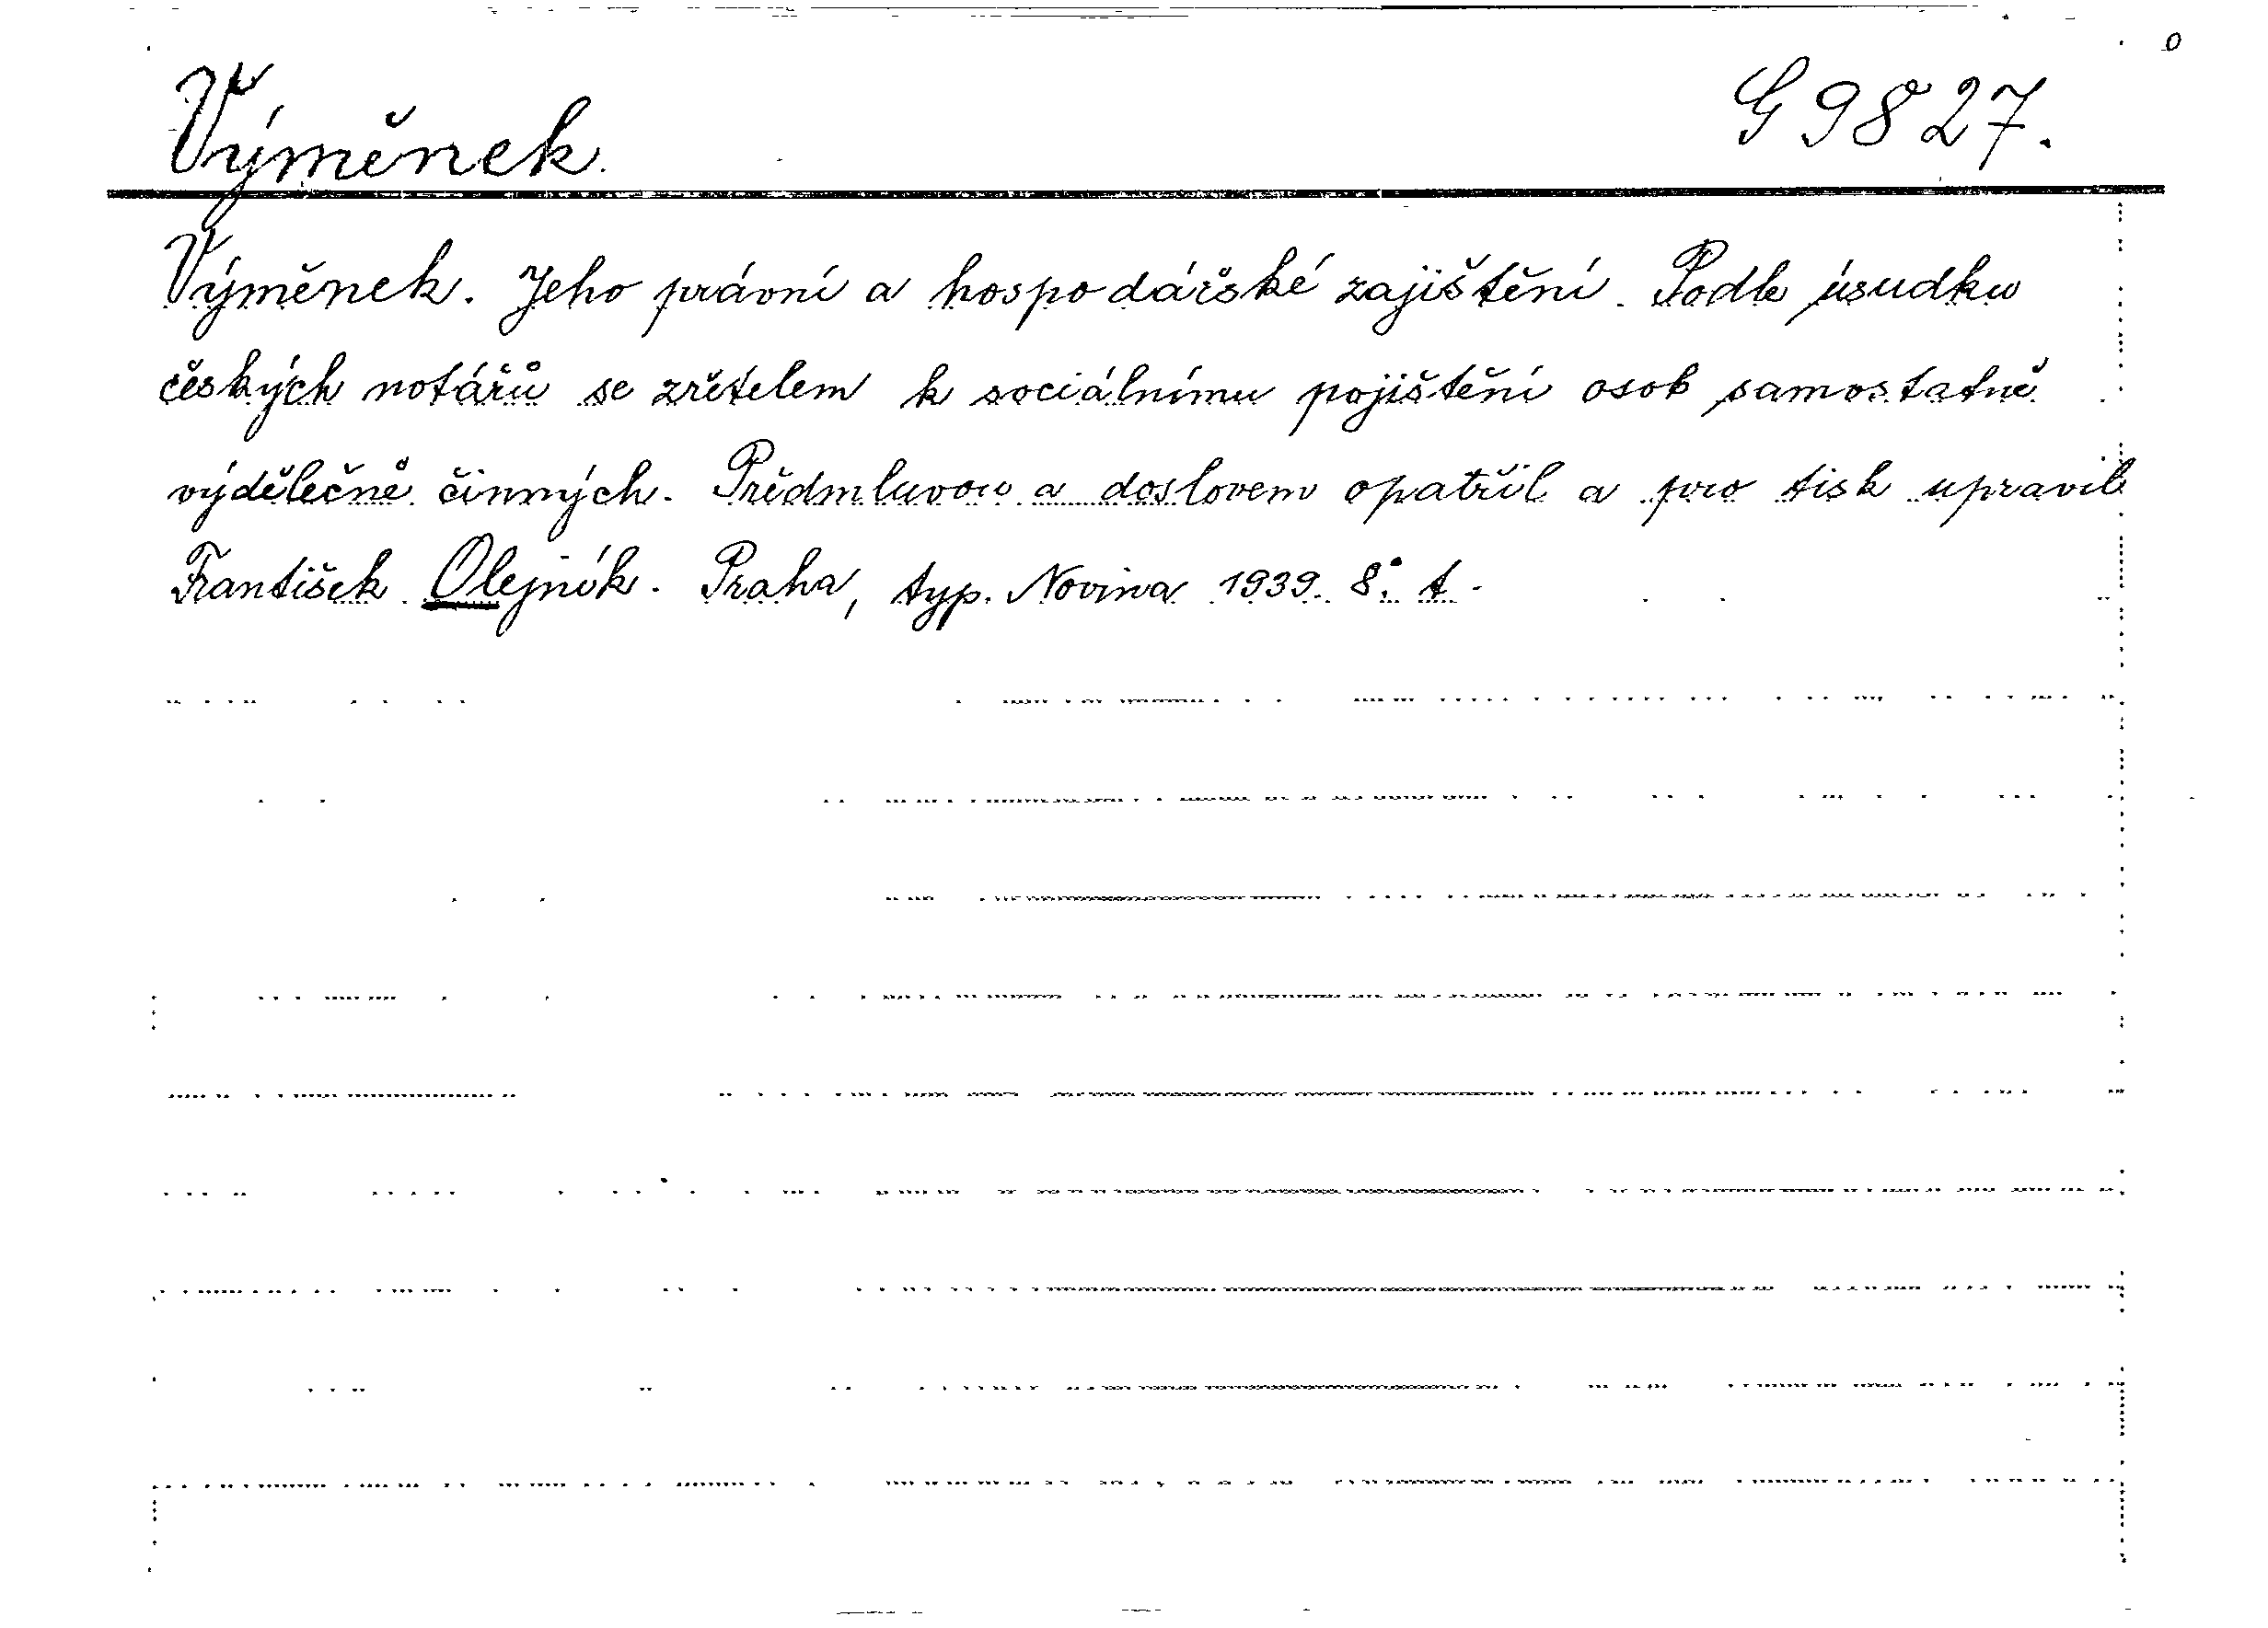 Výměnek. G 9827.
Výměnek. Jeho právní a hospodářské zajištění. Podle úsudku
českých notářů se zřetelem k sociálnímu pojištění osob samostatně
výdělečně činných. Předmluvou a doslovem opatřil a pro tisk upravil
František Olejník. Praha, typ. Novina 1939. 8°. t.